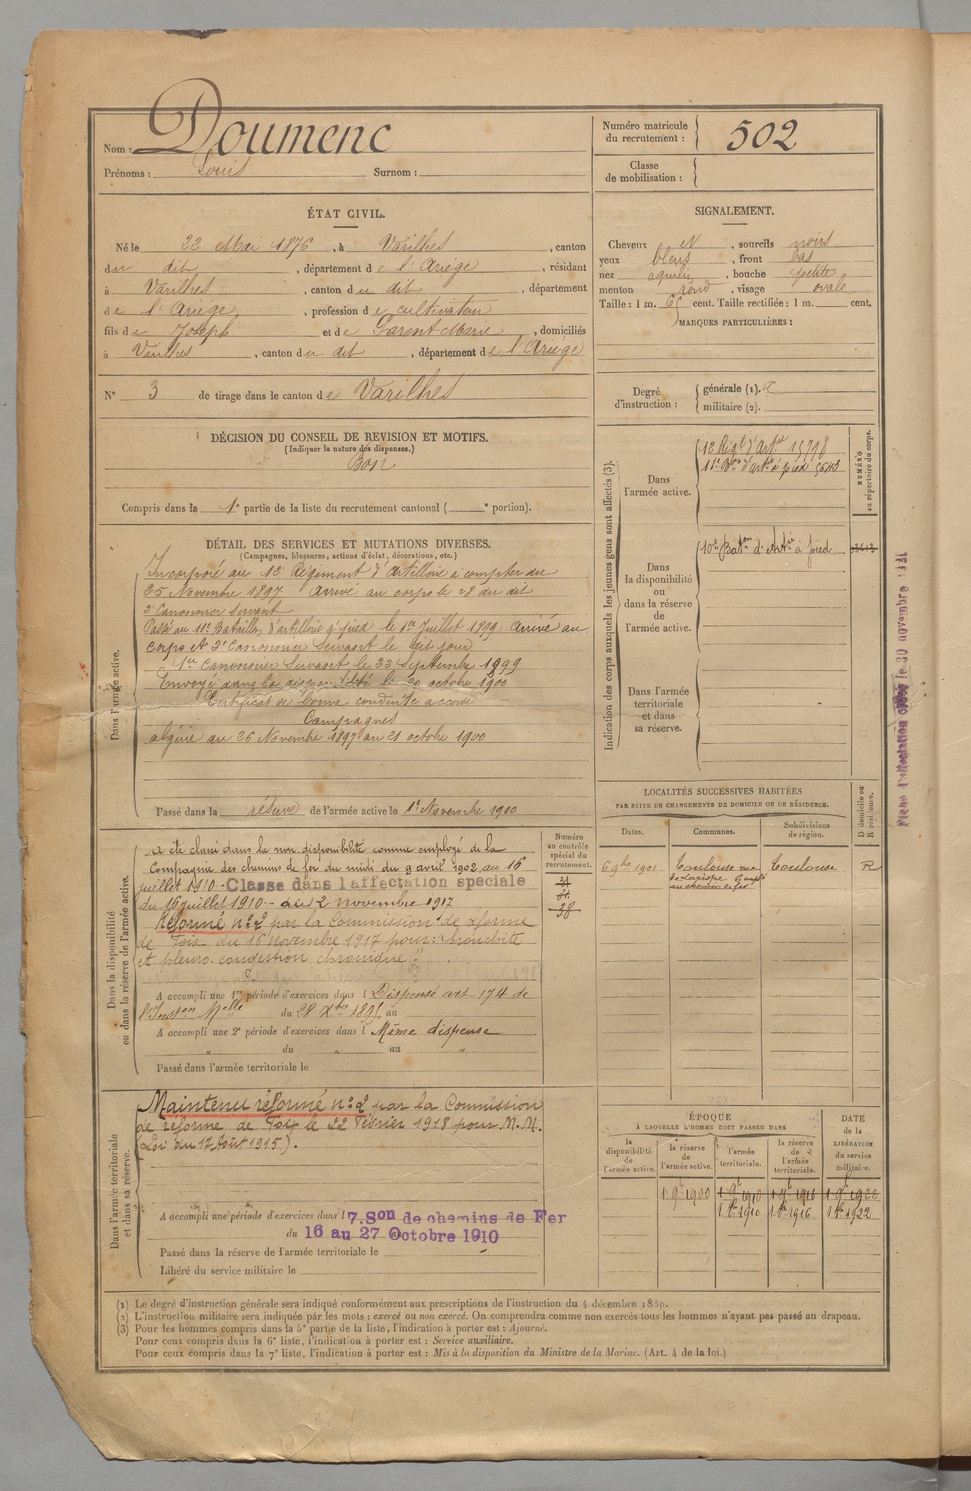 Nom : Doumenc
Prénoms : Louis Surnom :
Numéro matricule du recrutement : 502
Classe de mobilisation :
ÉTAT CIVIL.
Né le 22 Mai 1876, à Varilhes, canton
du dit, département de l'Ariège, résidant
à Varilhes, canton du dit, département
de l'Ariège, profession de cultivateur
fils de Joseph et de Garent Marie, domiciliés
à Varilhes, canton du dit, département de l'Ariège
N° 3 de tirage dans le canton de Varilhes
DÉCISION DU CONSEIL DE REVISION ET MOTIFS.
(Indiquer la nature des dispenses.)
Bon
Compris dans la 1e partie de la liste du recrutement cantonal ( e portion).
SIGNALEMENT.
Cheveux et, sourcils noirs
yeux bleus, front bas
nez aquilin, bouche petite
menton rond, visage ovale
Taille : 1 m. 65 cent. Taille rectifiée : 1 m. cent.
MARQUES PARTICULIÈRES :
Degré d'instruction :
générale (1).
militaire (2).
DÉTAIL DES SERVICES ET MUTATIONS DIVERSES.
(Campagnes, blessures, actions d'éclat, décorations, etc.)
Dans l'armée active.
Incorporé au 12e Régiment d'artillerie à compter du
25 Novembre 1897 Arrivé au corps le 28 du dit
2e Canonnier Servant
Passé au 11e Bataillon d'artillerie à pied le 1er Juillet 1899. Arrivé au
corps et 2e Canonnier Servant le dit jour
1er Canonnier Servant le 22 Septembre 1899
Envoyé dans la disponibilité le 20 octobre 1900
Certificat de bonne conduite accordé
Campagnes
Algérie du 26 Novembre 1897 au 21 octobre 1900
Passé dans la réserve de l'armée active le 1er Novembre 1900
Indication des corps auxquels les jeunes gens sont affectés (3).
NUMÉRO au répertoire du corps.
Dans l'armée active.
12 Régt d'Artie 15798
11e Bon d'artie à pied 5643
Dans la disponibilité ou dans la réserve de l'armée active.
10e Baton d'Artie à pied
Dans l'armée territoriale et dans sa réserve.
LOCALITÉS SUCCESSIVES HABITÉES
PAR SUITE DE CHANGEMENTS DE DOMICILE OU DE RÉSIDENCE.
Dates. Communes. Subdivisions de région. D domicile ou R résidence.
6 9bre 1901 Toulouse rue Toulouse R
au chemin de fer
Dans la disponibilité ou dans la réserve de l'armée active.
Numéro au contrôle spécial du recrutement.
38
A été classé dans la non disponibilité comme employé de la
Compagnie des chemins de fer du midi du 9 avril 1902 au 16
juillet 1910. Classé dans l'affectation spéciale
du 16 juillet 1910 au 2 novembre 1917
Réformé n° 2 par la Commission de réforme
de Foix du 16 novembre 1917 pour : "bronchite
et pleuro-congestion chronique".
A accompli une 1re période d'exercices dans l Dispensé art 174 de
l'Inston Melle du 28 Xbre 1895 au
A accompli une 2e période d'exercices dans l Même dispense
du " au "
Passé dans l'armée territoriale le
Dans l'armée territoriale et dans sa réserve.
Maintenu réformé n° 2 par la Commission
de réforme de Foix le 22 Février 1918 pour M. M.
(Loi du 17 Août 1915).
A accompli une période d'exercices dans l 7.Son de chemins de Fer
du 16 au 27 Octobre 1910
Passé dans la réserve de l'armée territoriale le
Libéré du service militaire le
ÉPOQUE
À LAQUELLE L'HOMME DOIT PASSER DANS
la disponibilité de l'armée active. la réserve de l'armée active. l'armée territoriale. la réserve de l'armée territoriale. DATE de la LIBÉRATION du service militaire.
1 9bre 1900 1 9bre 1910 1 9bre 1916 1 9bre 1922
1 8bre 1910 1 8bre 1916 1 8bre 1922
Fiche d'affectation le 30 novembre
(1) Le degré d'instruction générale sera indiqué conformément aux prescriptions de l'instruction du 4 décembre 1889.
(2) L'instruction militaire sera indiquée par les mots : exercé ou non exercé. On comprendra comme non exercés tous les hommes n'ayant pas passé au drapeau.
(3) Pour les hommes compris dans la 5e partie de la liste, l'indication à porter est : Ajourné.
Pour ceux compris dans la 6e liste, l'indication à porter est : Service auxiliaire.
Pour ceux compris dans la 7e liste, l'indication à porter est : Mis à la disposition du Ministre de la Marine. (Art. 4 de la loi.)